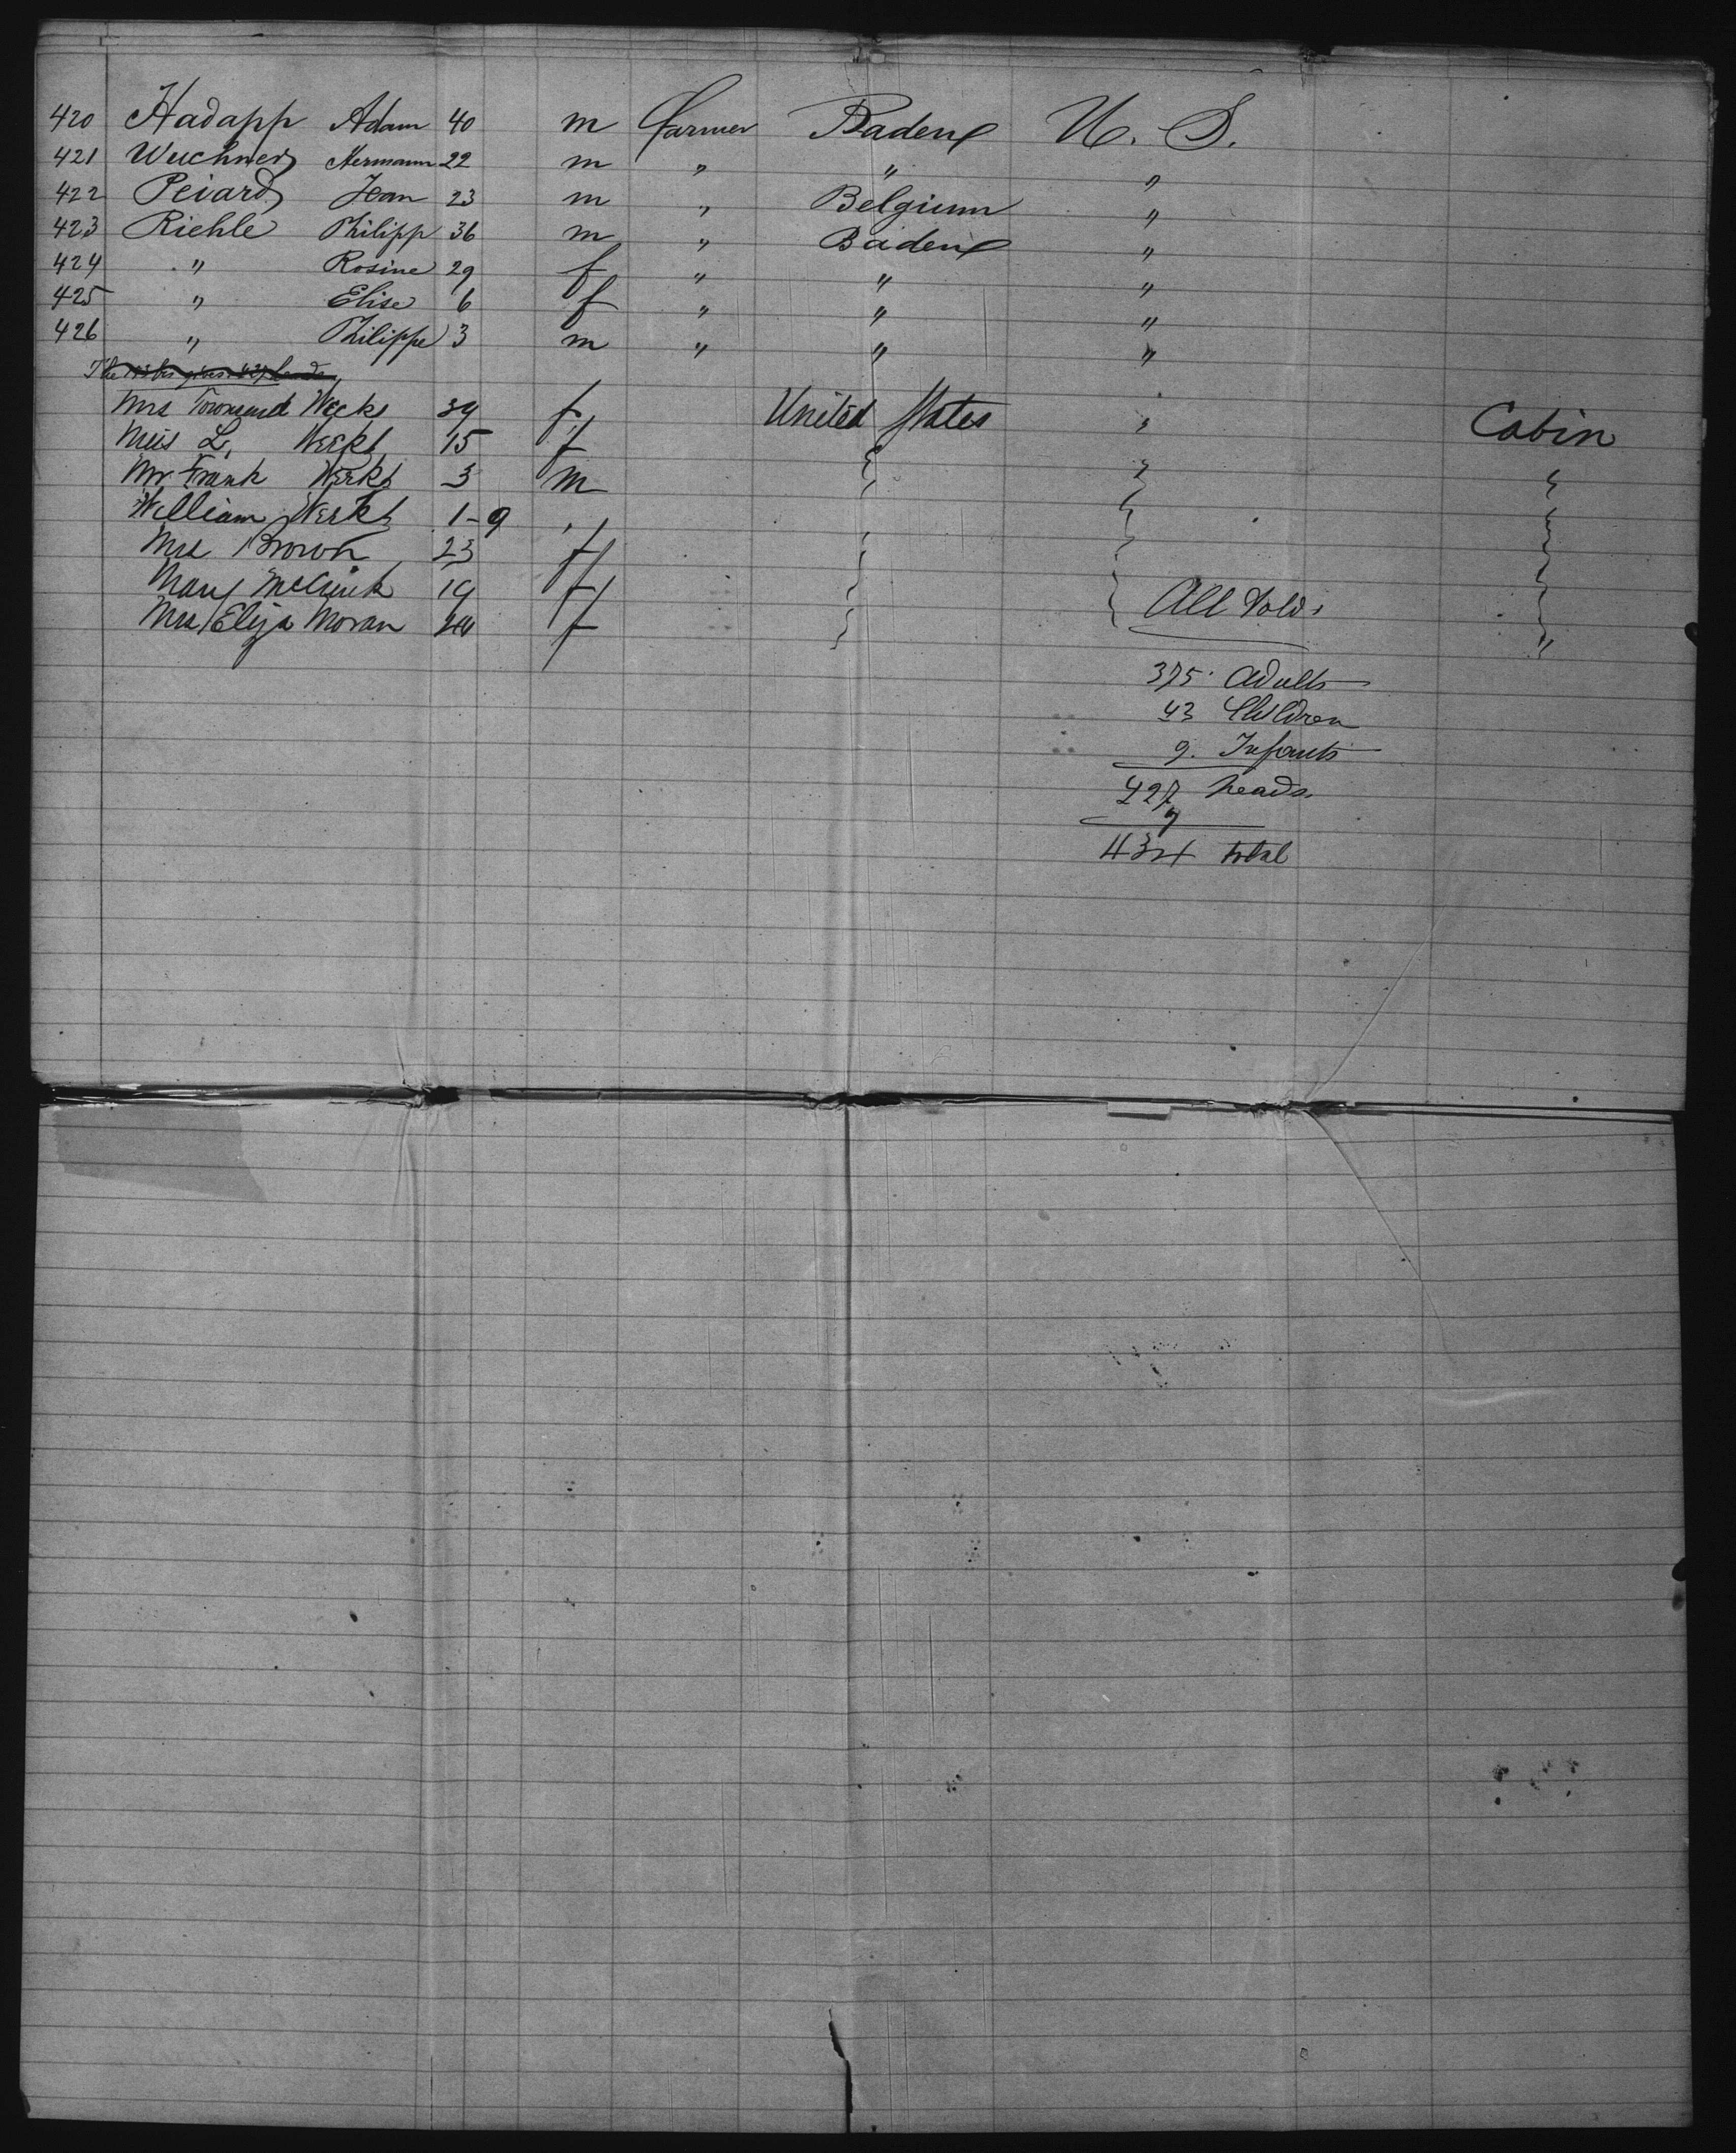 420 Hadapp Adam 40 m farmer Baden U. S.
421 Wuchner Hermann 22 m " " "
422 Peiard Jean 23 m " Belgium "
423 Riehle Philipp 36 m " Baden "
424 " Rosine 29 f " " "
425 " Elise 6 f " " "
426 " Philippe 3 m " " "
Mrs Townsend Weeks f United States " Cabin
Miss L. Weeks 15 f
Mr Frank Weeks 3 m "
William Weeks 1-9 "
Mrs Brown 23 f
Mary 19 f All told.
Mrs Eliza Moran f "
375. Adults
43 Children
9. Infants
427 heads.
7
434 total